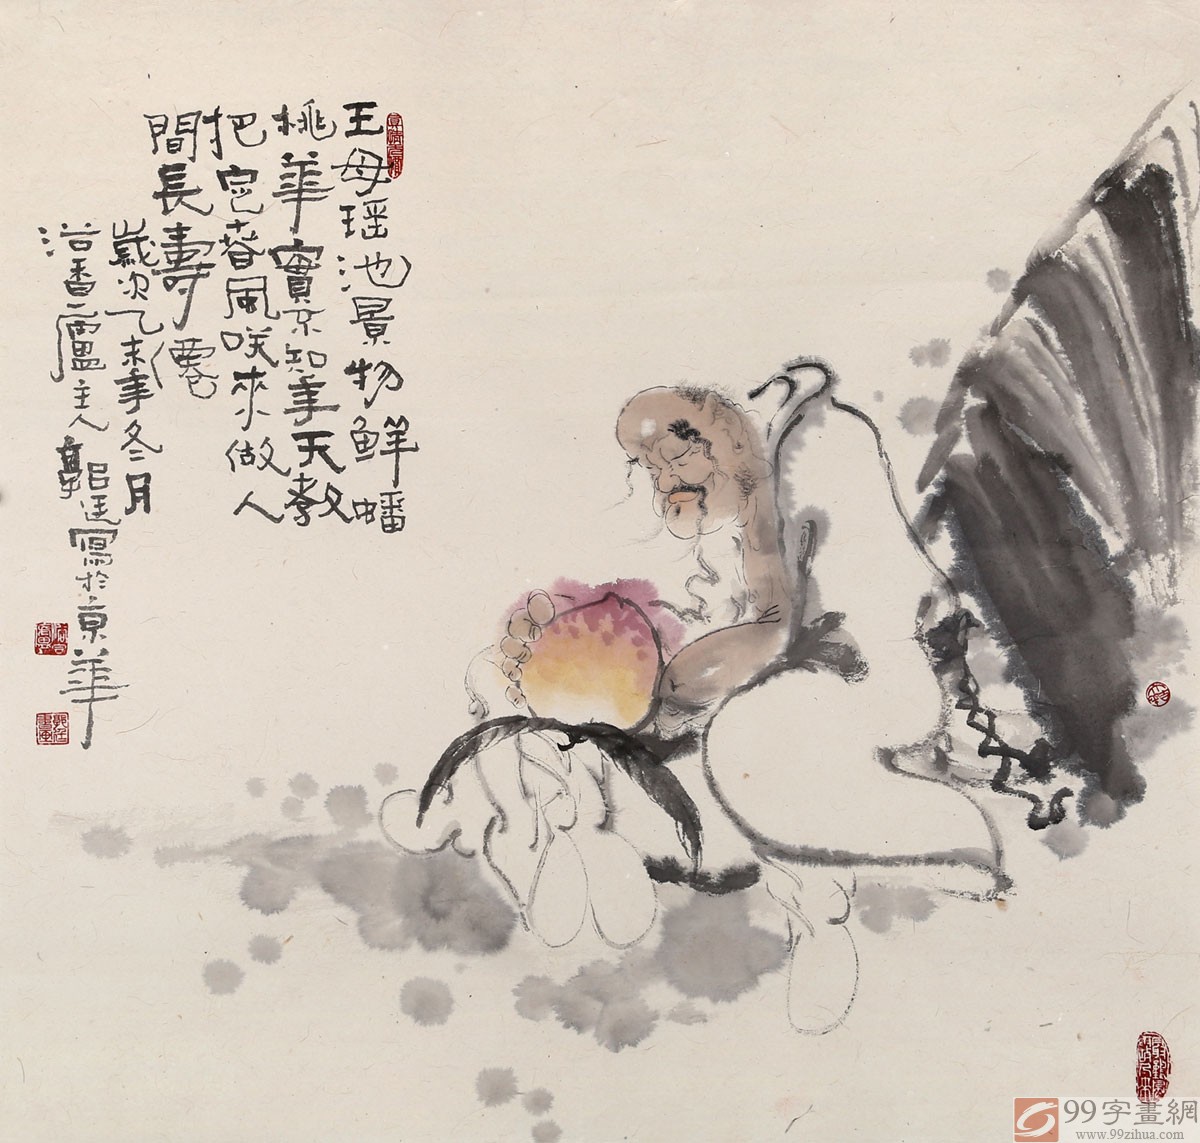 王母瑶池景物鲜蟠
桃華實不知年天教
把它春風咲來做人
間長壽僊
歲次乙未年冬月
香廬主人 寫於京華
99字畫網
www.99zihua.com